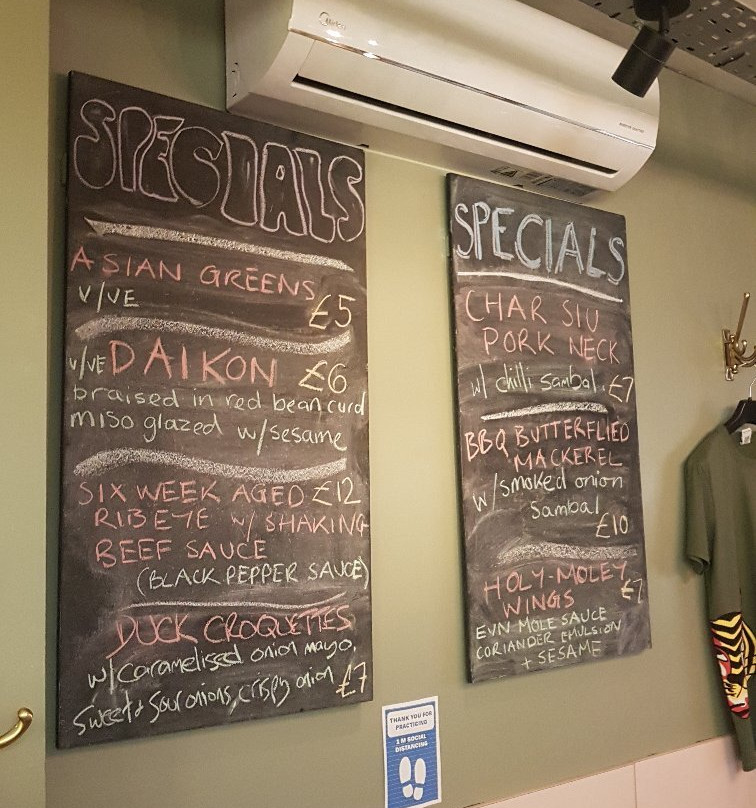 SPECIALS
ASIAN GREENS
V/VE £5
V/VE DAIKON £6
braised in red bean curd
miso glazed w/sesame
SIX WEEK AGED £12
RIBEYE w/ SHAKING
BEEF SAUCE
(BLACK PEPPER SAUCE)
DUCK CROQUETTES
w/Caramelised onion mayo,
Sweet & Sour onions, crispy onion £7
SPECIALS
CHAR SIU
PORK NECK
w/ chilli sambal. £7
BBQ BUTTERFLIED
MACKEREL
w/smoked onion
Sambal
£10
HOLY-MOLEY
WINGS £7
EVN MOLE SAUCE
CORIANDER EMULSION
+ SESAME
Midea
THANK YOU FOR
PRACTICING
2 M SOCIAL
DISTANCING